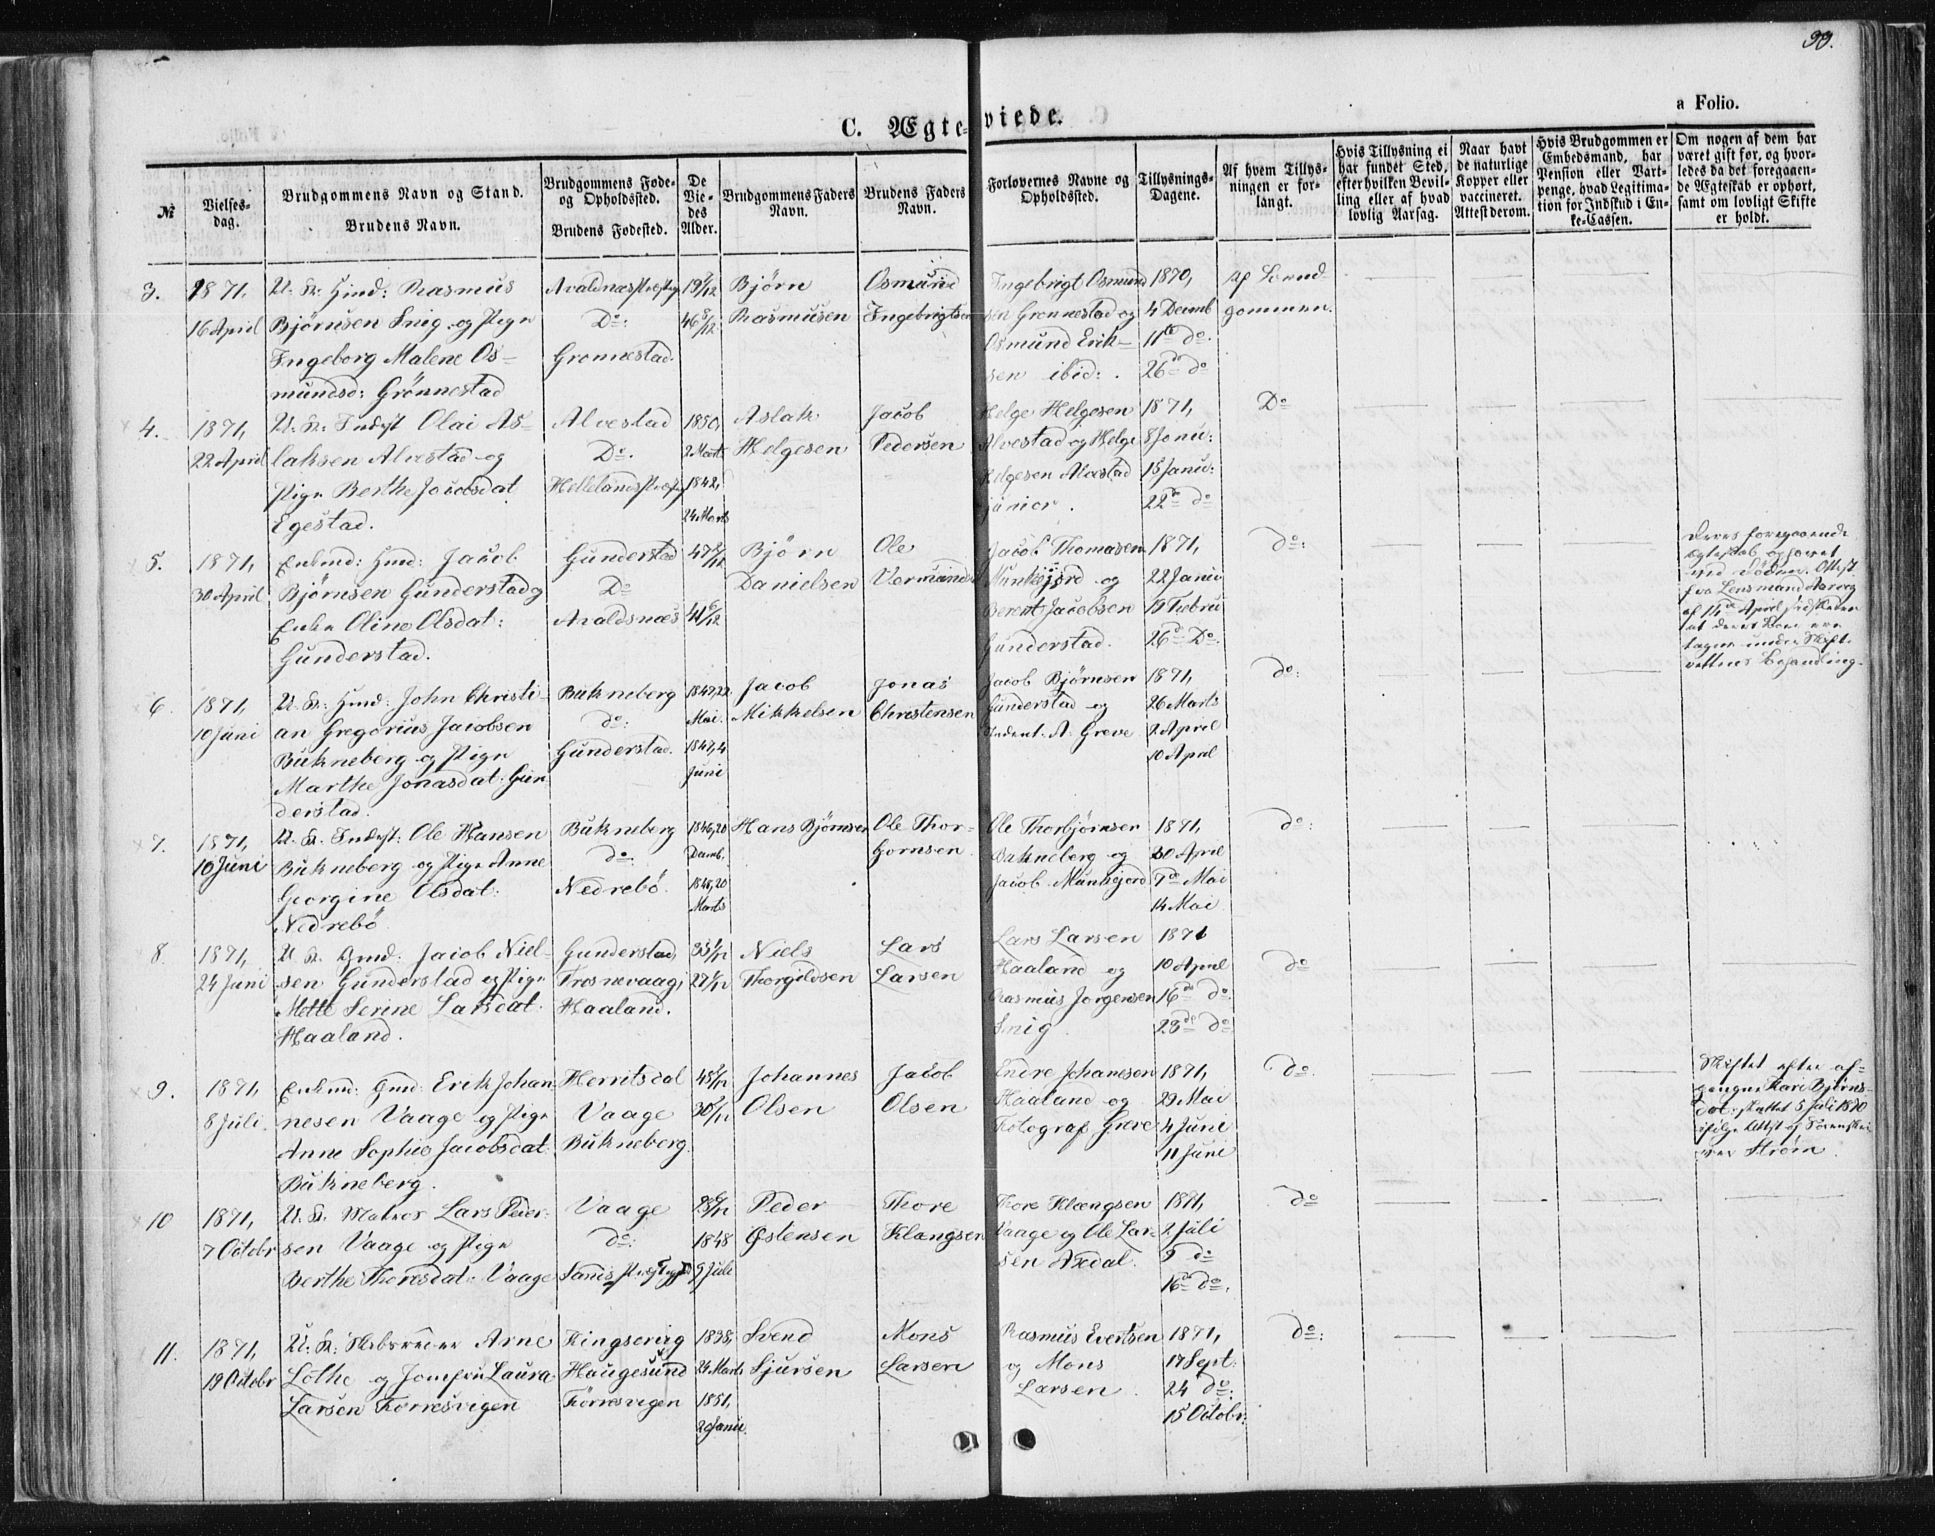 99.
a Folio.
C. Ægteviede.
№
Vielses-
dag.
Brudgommens Navn og Stand.
Brudens Navn.
Brudgommens Føde-
og Opholdssted.
Brudens Fødested.
De
Vie-
des
Alder.
Brudgommens Faders
Navn.
Brudens Faders
Navn.
Forlovernes Navne og
Opholdssted.
Tillysnings-
Dagene.
Af hvem Tillys-
ningen er for-
langt.
Hvis Tillysning ei
har fundet Sted,
efter hvilken Bevil-
ling eller af hvad
lovlig Aarsag.
Naar havt
de naturlige
Kopper eller
vaccineret.
Attest derom.
Hvis Brudgommen er
Embedsmand, har
Pension eller Vart-
penge, hvad Legitima-
tion for Indskud i En-
ke-Cassen.
Om nogen af dem har
været gift før, og hvor-
ledes da det foregaaen-
de Ægteskab er ophørt,
samt om lovligt Skifte
er holdt.
3.
1871,
16 April
U. K. Gmd: Rasmus
Bjørnsen Snig og Pige
Ingeborg Malene Os-
mundsd: Grønnestad
Avaldnæs Præstg
Do:
Grønnestad.
46 8/12
Bjørn
Rasmusen
Osmund
Ingebrigtsen
Ingebrigt Osmund
sen Grønnestad og
Osmund Erik-
sen ibid: .
1870,
4 Decmb
11te do.
26de do
af Brud
gommen.
4.
1871,
22 April
U. K. Inderst Olai As-
laksen Alvestad og
Pige Berthe Jacobsdat
Egestad.
Alvestad
Do.
Hellelands Præstg
1850,
2 Marts
1842,
24 Marts
Aslak
Helgesen
Jacob
Pedersen
Helge Helgesen
Alvestad og Helge
Helgesen Alvestad
junior .
1871,
8 Janu:
15 Janu:
22de do
Do
5.
1871,
30 April
Enkmd: Gmd: Jacob
Bjørnsen Gunderstad og
Enke Oline Olsdat:
Gunderstad.
Gunderstad
Do
Avaldsnæs
Bjørn
Danielsen
Ole
Jacob Thomasen
Munkejord og
Berent Jacobsen
Gunderstad.
1871,
22 Janu
19 Febru
26de Do.
do:
Deres foregaaende
Ægteskab ophævet
ved Døden. Attest
fra Lensmand Aarog
af 14de April
at deres Boer ere
tagne under Skifte-
rettens Behandling.
6.
1871,
10 Juni
U. K. Gmd: John Christi-
an Gregorius Jacobsen
Bukneberg og Pige
Marthe Jonasdat: Gun
derstad.
Bukneberg
do:
Gunderstad.
1847, 22
Mai.
1847, 4
Juni
Jacob
Mikkelsen
Jonas
Christensen
Jacob Bjørnsen
Gunderstad og
Student A. Greve
1871,
26 Marts
2 April
10 April
do:
7.
1871,
10 Juni
U. K. Inderst: Ole Hansen
Bukneberg og Pige Anne
Georgine Olsdat:
Nedrebö
Bukneberg
do:
Nedrebö.
1846, 20
Decmb,
1848, 20
Marts
Hans Bjørnsen
Ole Thor-
bjørnsen
Ole Thorbjørnsen
Bukneberg og
Jacob Munkejord
1871,
30 April
7de Mai
14 Mai
do:
8.
1871,
24 Juni
U. K. Gmd: Jacob Niel-
sen Gunderstad og Pige
Mette Serine Larsdat:
Haaland.
Gunderstad,
Trosnevaag,
Haaland.
Niels
Thorgildsen
Lars
Larsen
Lars Larsen
Haaland og
Rasmus Jorgensen
Snig .
1871
10 April
16de do.
23de do
do
9.
1871,
8 Juli.
Enkmd: Gmd: Erik Johan
nesen Vaage og Pige
Anne Sophie Jacobsdat:
Bukneberg.
Herritsdal
Vaage
Bukneberg.
Johannes
Olsen
Jacob
Olsen
Endre Johanesen
Haaland og
Fotograf Greve
1871,
29 Mai
4 Juni
11 Juni
do.
Skiftet efter af-
gangne Kari Bjørns-
dat: sluttet 5 Juli 1870
ifølge Attest af Sorenskri
ver Strøm.
10
1871,
7 Octobr
U. K. Matros Lars Peder-
sen Vaage og Pige
Berthe Thoresdat: Vaage
Vaage
do:
1848
9 Juli
Peder
Østensen
Thore
Klængsen
Thore Klængsen
Vaage og Ole Lar-
sen Axdal.
1871,
2 Juli
9 do
16de do.
do
11.
1871,
19 Octobr
U. K. Skibsreder Arne
Lothe og Jomfru Laura
Larsen Førresvigen
Kingservig
Haugesund
Førresvigen
1838,
24 Marts
1851,
20 Janu.
Svend
Sjursen
Mons
Larsen
Rasmus Evertsen
og Mons
Larsen .
1871,
17 Sept:
24 do:
15 Octobr.
do: